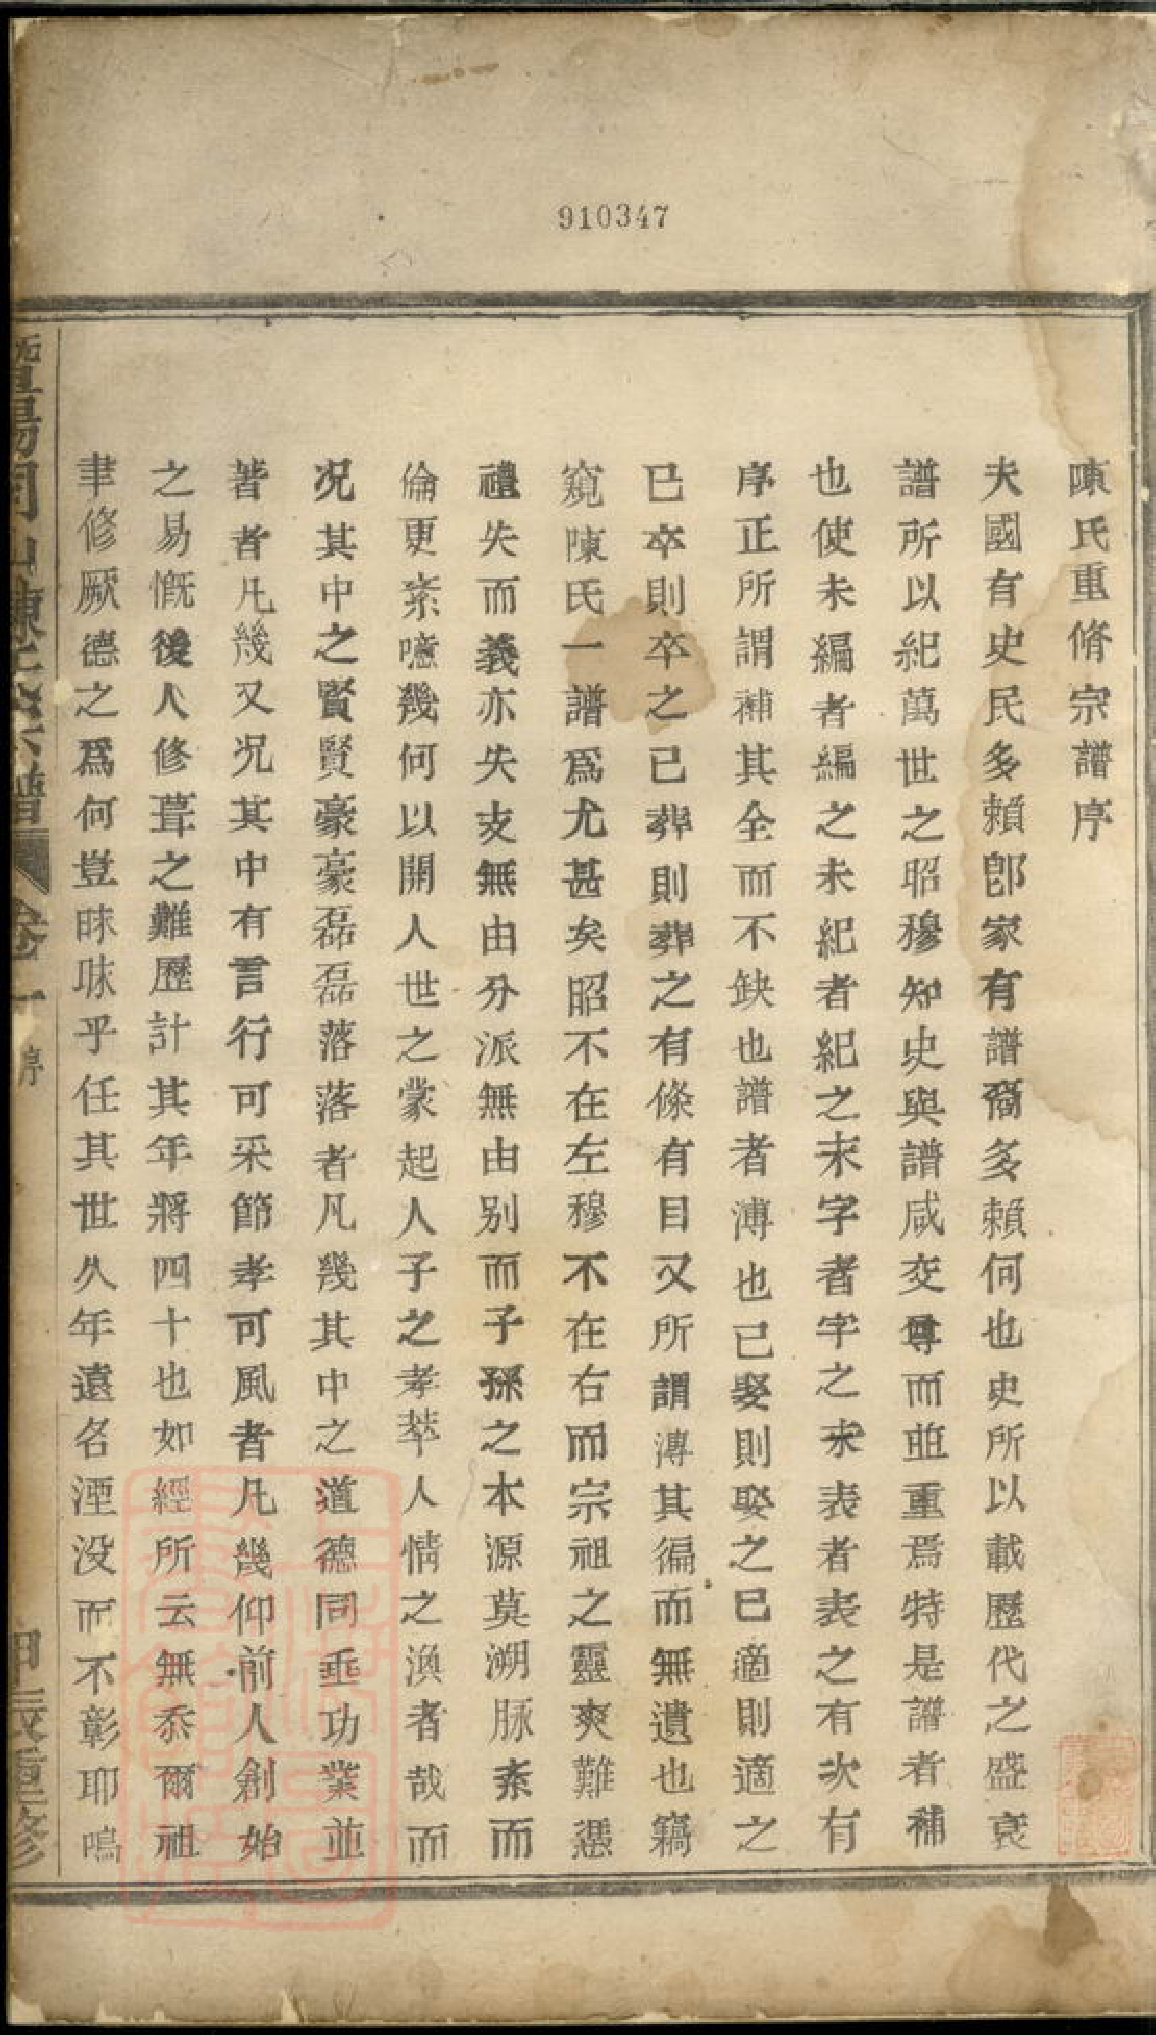 910347
陳氏重脩宗譜序
夫國有史民多賴卽家有譜裔多賴何也史所以載歷代之盛衰
譜所以紀萬世之昭穆知史與譜咸交尊而並重焉特是譜者補
也使未編者編之未紀者紀之未字者字之未表者表之有次有
序正所謂補其全而不缺也譜者溥也已娶則娶之巳適則適之
巳卒則卒之已葬則葬之有條有目又所謂溥其徧而無遺也竊
窺陳氏一譜爲尤甚矣昭不在左穆不在右而宗祖之靈爽難慿
禮失而義亦失支無由分派無由别而子孫之本源莫溯脉紊而
倫更紊噫幾何以開人世之蒙起人子之孝萃人情之渙者哉而
况其中之賢賢豪豪磊磊落落者凡幾其中之道德同垂功業並
著者凡幾又况其中有言行可采節孝可風者凡幾仰前人創始
之易慨後人修葺之難歷計其年將四十也如經所云無忝爾祖
聿修厥德之爲何豈昧昧乎任其世久年遠名湮没而不彰耶鳴
暨陽同山陳氏宗譜 卷一 序 甲辰重修